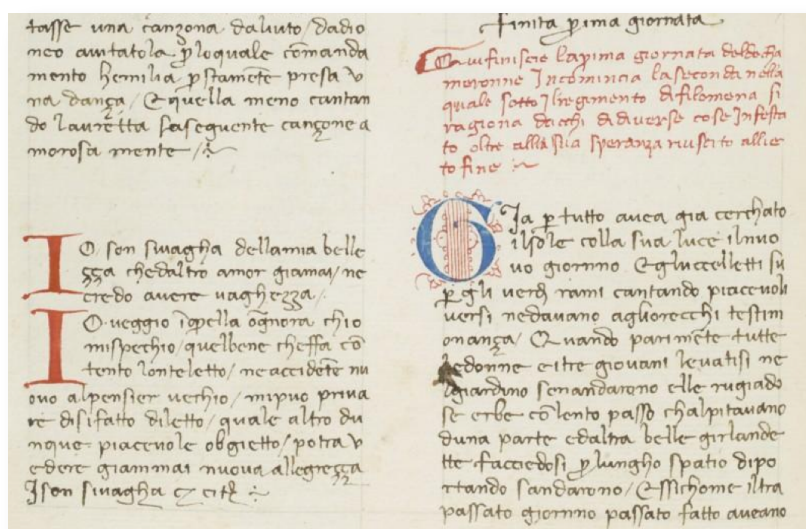 tasse una canzona daliuto / dadio
neo aiutatola ꝑ loquale comanda
mento hemilia pstamēte presa v
na dança / Et quella meno cantan
do lauretta lasequente cançone a
morosa mente /
IO son sivagha dellamia belle
zza chedaltro amor giamai / ne
credo avere vaghezza /
IO veggio īq̄ella ogn̄ora chio
mispechio / quelbene cheffa cō
tento lonteletto / ne accidēte nu
ovo alpensier vechio / mipuo priva
re disifatto diletto / quale altro du
nque piacevole obgietto / potra v
edere giammai nuova allegrezza
Json sivagha
finita prima giornata
Qui finiscie laprima giornata del
moronne Incomincia laseconda nella
quale sotto Ilregimento difilomena si
ragiona dichi dadiverse cose Infesta
to oltre allasua speranza riuscito allie
to fine
GIa ꝑ tutto avea gia cerchato
ilsole colla sua luce ilnuo
vo giornno Egluccelletti su
ꝑ gli verdi rami cantando piacevoli
versi nedavano agliorecchi testim
onança / Quando parimēte tutte
ledonne eitre giovani levatisi ne
giardino senandarono elle rugiado
se erbe cō lento passo chalpitavano
duna parte edaltra belle girlande
tte facciēdosi ꝑ lungho spatio dipo
rtando sandarono / Essichome iltra
passato giornno passato fatto aveano